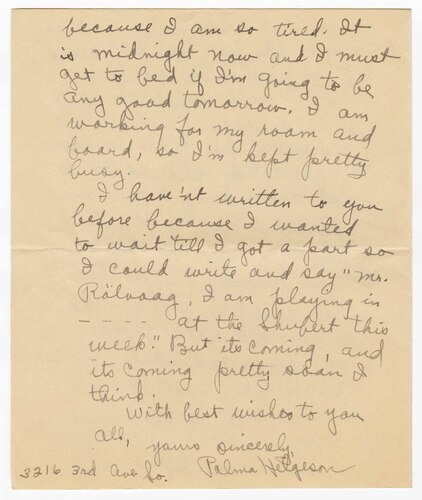 because I am so tired. It
is midnight now and I must
get to bed if I'm going to be
any good tomorrow. I am
working for my room and
board, so I'm kept pretty
busy.
I have'nt written to you
before because I wanted
to wait till I got a part so
I could write and say "Mr.
Rölvaag, I am playing in
- - - - - at the Shubert this
week." But its coming, and
its coming pretty soon I
think.
With best wishes to you
all,
yours sincerely,
Palma Helgeson
3216 3rd Ave So.